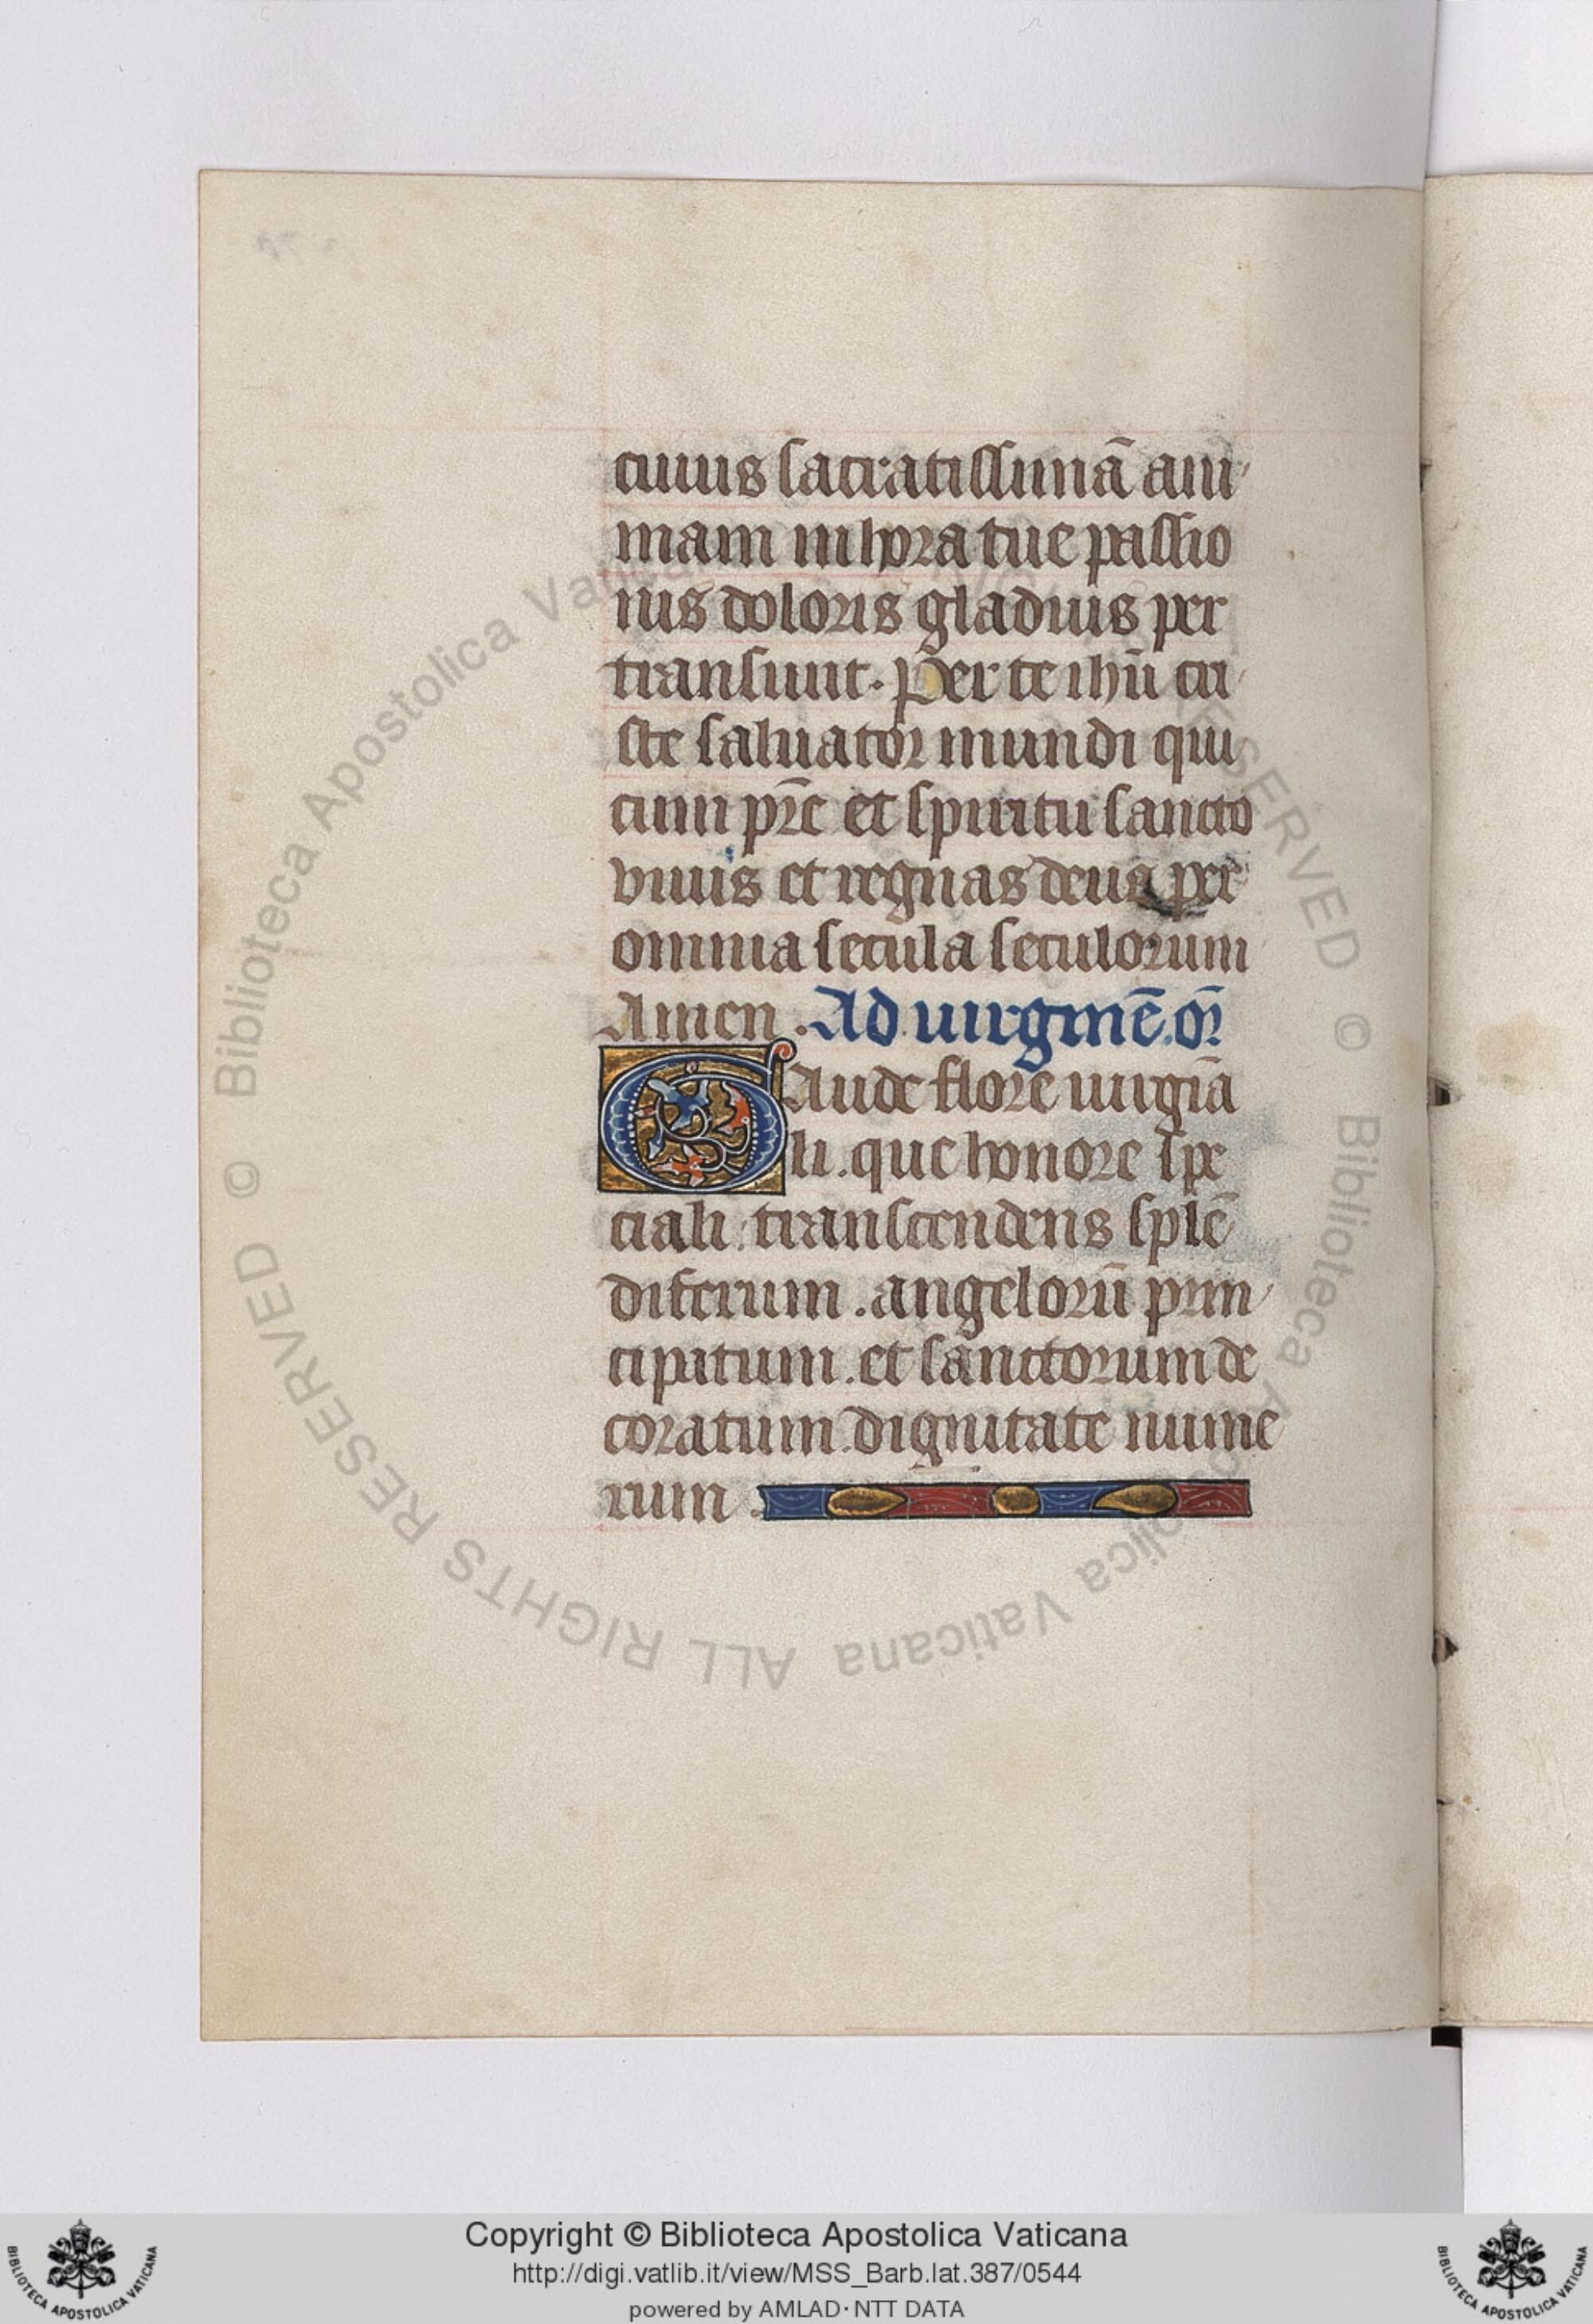 cuius sacratissimā ani
mam in hora tue passio
nis doloris gladius per
transiuit. Per te ihū cri
ste saluator mundi qui
cum pr̄e et spiritu sancto
viuis et regnas deus per
omnia secula seculorum
Amen. Ad uirginē. or̄
Gaude flore uirgīa
li. que honore spe
ciali. transcendens splē
diferum. angelorū prin
cipatum. et sanctorum de
coratum dignitate nume
rum.
© Biblioteca Apostolica Vaticana ALL RIGHTS RESERVED © Biblioteca Apostolica Vaticana ALL RIGHTS RESERVED
Copyright © Biblioteca Apostolica Vaticana
http://digi.vatlib.it/view/MSS_Barb.lat.387/0544
powered by AMLAD·NTT DATA
BIBLIOTECA APOSTOLICA VATICANA
BIBLIOTECA APOSTOLICA VATICANA